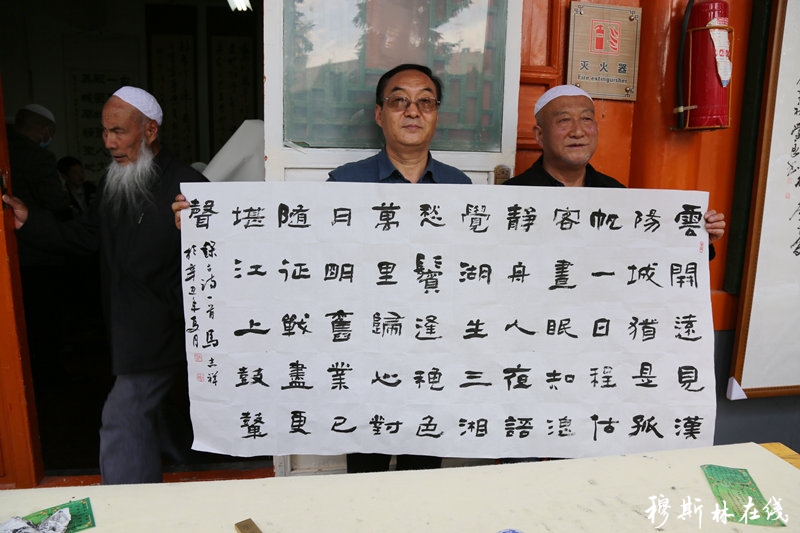 雲開遠見漢
陽城猶是孤
帆一日程估
客晝眠知浪
靜舟人夜語
覺湖生三湘
愁鬢逢秋色
萬里歸心對
月明舊業已
隨征戰盡更
堪江上鼓鼙
聲
詩一首 馬志祥
於辛丑年 月
灭火器
Fire extinguisher
穆斯林在线